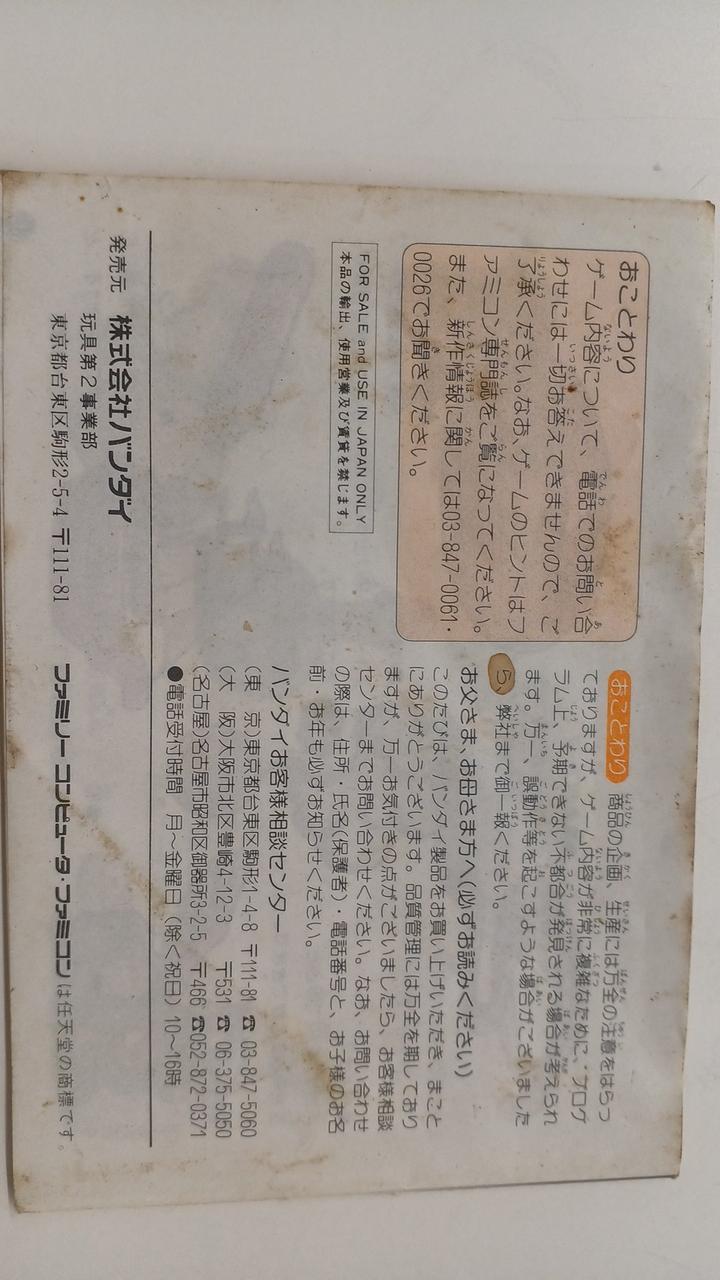 おことわり
ゲーム内容について、電話でのお問い合
わせには一切お答えできませんので、ご
了承ください。なお、ゲームのヒントはフ
ァミコン専門誌をご覧になってください。
また、新作情報に関しては03-847-0061・
0026でお聞きください。
FOR SALE and USE IN JAPAN ONLY
本品の輸出、使用営業及び賃貸を禁じます。
おことわり 商品の企画、生産には万全の注意をはらっ
ておりますが、ゲーム内容が非常に複雑なために、プログ
ラム上、予期できない不都合が発見される場合が考えられ
ます。万一、誤動作等を起こすような場合がございました
ら、弊社まで御一報ください。
お父さま、お母さま方へ(必ずお読みください)
このたびは、バンダイ製品をお買い上げいただき、まこと
にありがとうございます。品質管理には万全を期しており
ますが、万一お気付きの点がございましたら、お客様相談
センターまでお問い合わせください。なお、お問い合わせ
の際は、住所・氏名(保護者)・電話番号と、お子様のお名
前・お年も必ずお知らせください。
バンダイお客様相談センター
(東 京)東京都台東区駒形1-4-8 〒111-81 ☎ 03-847-5060
(大 阪)大阪市北区豊崎4-12-3 〒531 ☎ 06-375-5050
(名古屋)名古屋市昭和区御器所3-2-5 〒466 ☎052-872-0371
●電話受付時間 月〜金曜日(除く祝日)10〜16時
発売元 株式会社バンダイ
玩具第2事業部
東京都台東区駒形2-5-4 〒111-81
ファミリーコンピュータ・ファミコンは任天堂の商標です。